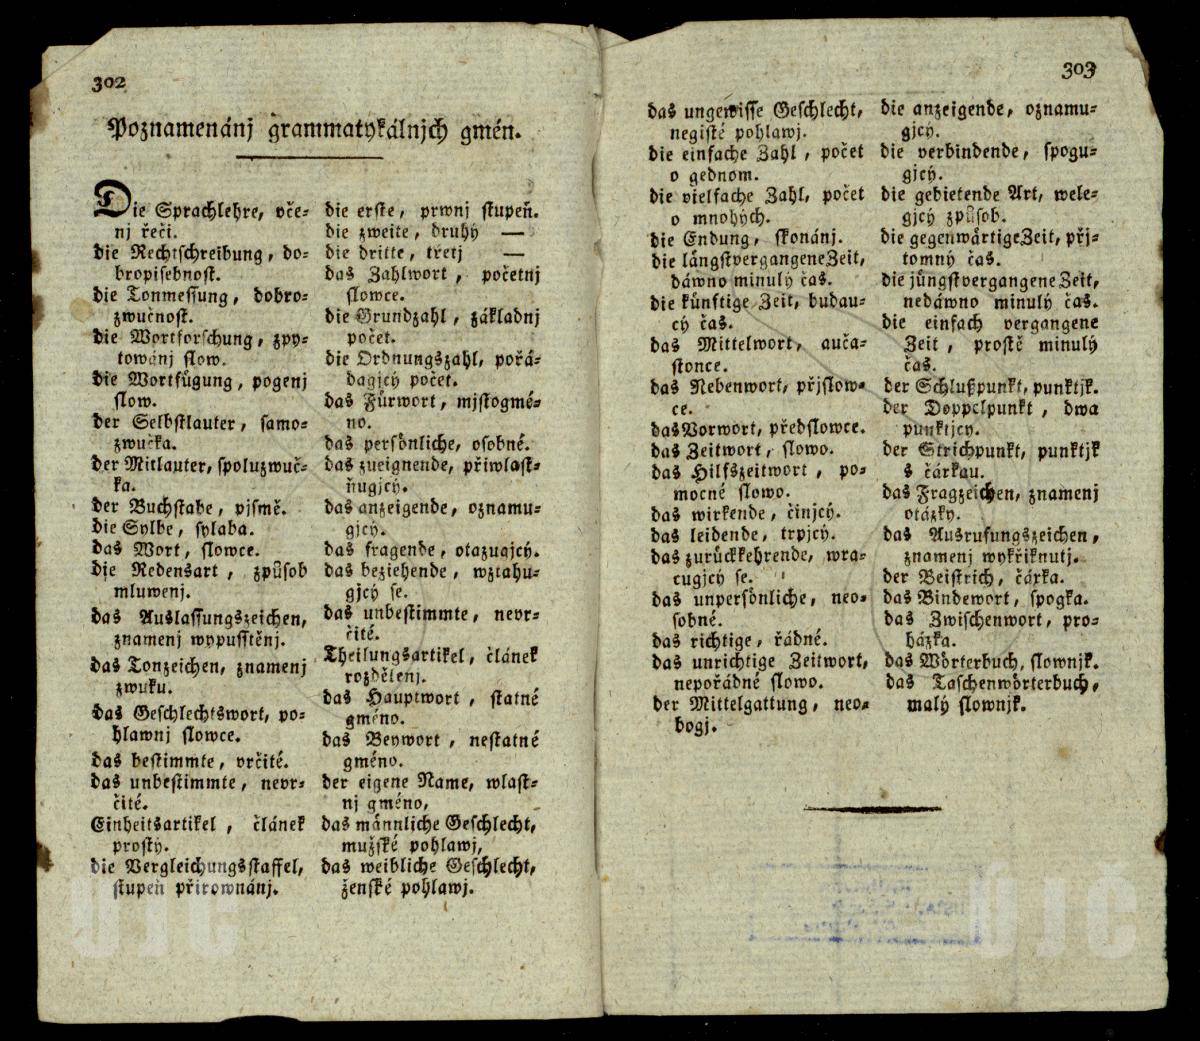 302
Poznamenánj grammatykálnjch gmén.
Die Sprachlehre, vče-
nj řeči.
die Rechtschreibung, do-
bropisebnost.
die Tonmessung, dobro-
zwučnost.
die Wortforschung, zpy-
towánj slow.
die Wortfügung, pogenj
slow.
der Selbstlauter, samo-
zwučka.
der Mitlauter, spoluzwuč-
ka.
der Buchstabe, pjsmě.
die Sylbe, sylaba.
das Wort, slowce.
die Redensart, způsob
mluwenj.
das Auslassungszeichen,
znamenj wypusstěnj.
das Tonzeichen, znamenj
zwuku.
das Geschlechtswort, po-
hlawnj slowce.
das bestimmte, vrčité.
das unbestimmte, nevr-
čité.
Einheitsartikel, článek
prostý.
die Vergleichungsstaffel,
stupeň přirownánj.
die erste, prwnj stupeň.
die zweite, druhý —
die dritte, třetj —
das Zahlwort, početnj
slowce.
die Grundzahl, základnj
počet.
die Ordnungszahl, pořá-
dagjcý počet.
das Fürwort, mjstogmé-
no.
das persönliche, osobné.
das zueignende, přiwlast-
ňugjcý.
das anzeigende, oznamu-
gjcý.
das fragende, otazugjcý.
das beziehende, wztahu-
gjcý se.
das unbestimmte, nevr-
čité.
Theilungsartikel, článek
rozdělenj.
das Hauptwort, statné
gméno.
das Beywort, nestatné
gméno.
der eigene Name, wlast-
nj gméno,
das männliche Geschlecht,
mužské pohlawj,
das weibliche Geschlecht,
ženské pohlawj.
303
das ungewisse Geschlecht,
negisté pohlawj.
die einfache Zahl, počet
o gednom.
die vielfache Zahl, počet
o mnohých.
die Endung, skonánj.
die längstvergangene Zeit,
dáwno minulý čas.
die künftige Zeit, budau-
cý čas.
das Mittelwort, auča-
stonce.
das Nebenwort, přjslow-
ce.
das Vorwort, předslowce.
das Zeitwort, slowo.
das Hilfszeitwort, po-
mocné slowo.
das wirkende, činjcý.
das leidende, trpjcý.
das zurückkehrende, wra-
cugjcý se.
das unpersönliche, neo-
sobné.
das richtige, řádné.
das unrichtige Zeitwort,
nepořádné slowo.
der Mittelgattung, neo-
bogj.
die anzeigende, oznamu-
gjcý.
die verbindende, spogu-
gjcý.
die gebietende Art, wele-
gjcý způsob.
die gegenwärtige Zeit, přj-
tomný čas.
die jüngstvergangene Zeit,
nedáwno minulý čas.
die einfach vergangene
Zeit, prostě minulý
čas.
der Schlußpunkt, punktjk.
der Doppelpunkt, dwa
punktjcy.
der Strichpunkt, punktjk
s čárkau.
das Fragzeichen, znamenj
otázky.
das Ausrufungszeichen,
znamenj wykřiknutj.
der Beistrich, čárka.
das Bindewort, spogka.
das Zwischenwort, pro-
házka.
das Wörterbuch, slownjk.
das Taschenwörterbuch,
malý slownjk.